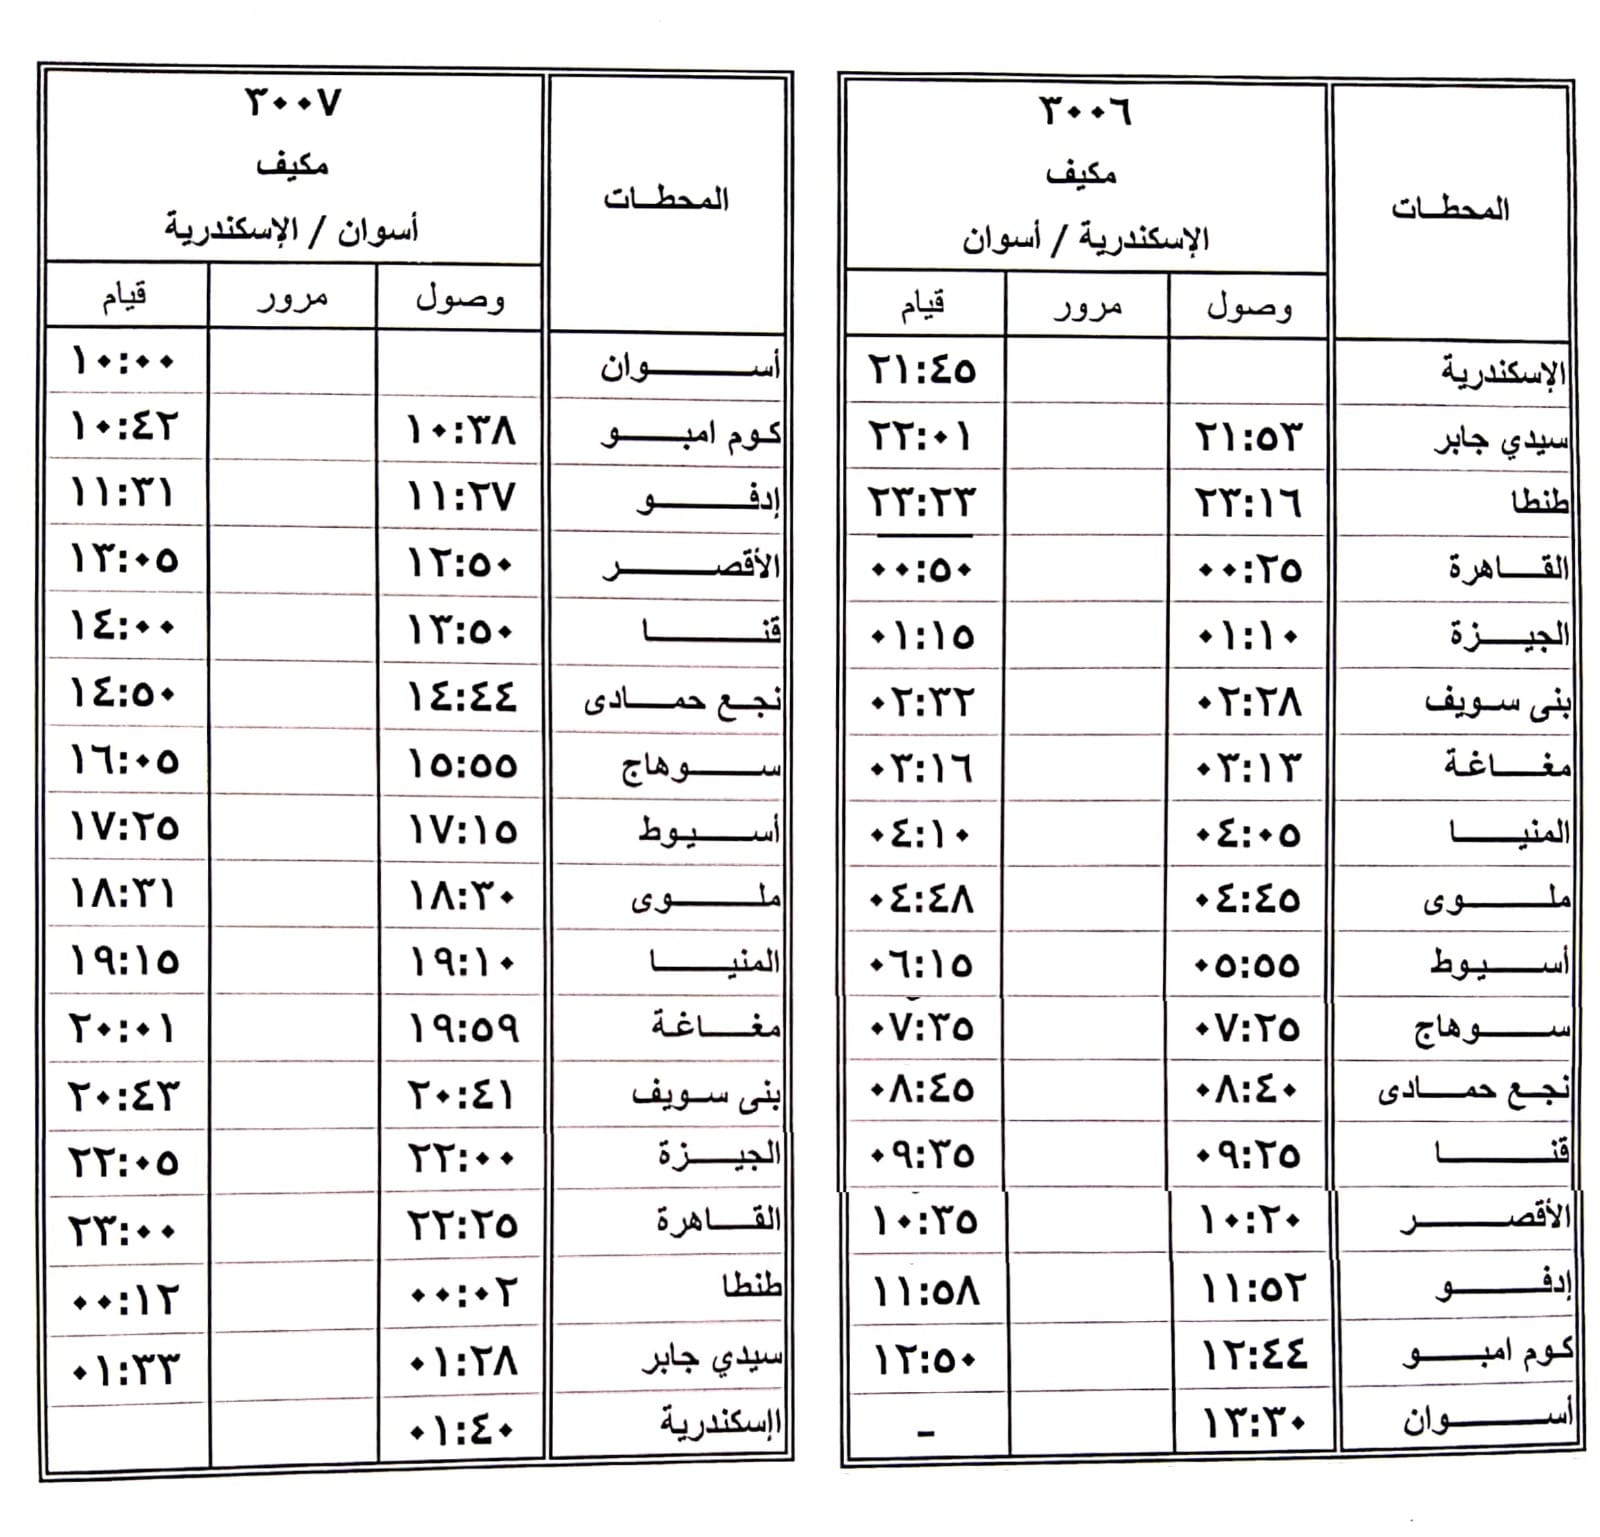 المحطات ٣٠٠٦
مكيف
الإسكندرية / أسوان
وصول مرور قيام
الإسكندرية ٢١:٤٥
سيدي جابر ٢١:٥٣ ٢٢:٠١
طنطا ٢٣:١٦ ٢٣:٢٣
القاهرة ٠٠:٢٥ ٠٠:٥٠
الجيزة ٠١:١٠ ٠١:١٥
بنى سويف ٠٢:٢٨ ٠٢:٣٢
مغاغة ٠٣:١٣ ٠٣:١٦
المنيا ٠٤:٠٥ ٠٤:١٠
ملوى ٠٤:٤٥ ٠٤:٤٨
أسيوط ٠٥:٥٥ ٠٦:١٥
سوهاج ٠٧:٢٥ ٠٧:٣٥
نجع حمادى ٠٨:٤٠ ٠٨:٤٥
قنا ٠٩:٢٥ ٠٩:٣٥
الأقصر ١٠:٢٠ ١٠:٣٥
إدفو ١١:٥٢ ١١:٥٨
كوم امبو ١٢:٤٤ ١٢:٥٠
أسوان ١٣:٣٠ -
المحطات ٣٠٠٧
مكيف
أسوان / الإسكندرية
وصول مرور قيام
أسوان ١٠:٠٠
كوم امبو ١٠:٣٨ ١٠:٤٢
إدفو ١١:٢٧ ١١:٣١
الأقصر ١٢:٥٠ ١٣:٠٥
قنا ١٣:٥٠ ١٤:٠٠
نجع حمادى ١٤:٤٤ ١٤:٥٠
سوهاج ١٥:٥٥ ١٦:٠٥
أسيوط ١٧:١٥ ١٧:٢٥
ملوى ١٨:٣٠ ١٨:٣١
المنيا ١٩:١٠ ١٩:١٥
مغاغة ١٩:٥٩ ٢٠:٠١
بنى سويف ٢٠:٤١ ٢٠:٤٣
الجيزة ٢٢:٠٠ ٢٢:٠٥
القاهرة ٢٢:٢٥ ٢٣:٠٠
طنطا ٠٠:٠٢ ٠٠:١٢
سيدي جابر ٠١:٢٨ ٠١:٣٣
اإسكندرية ٠١:٤٠